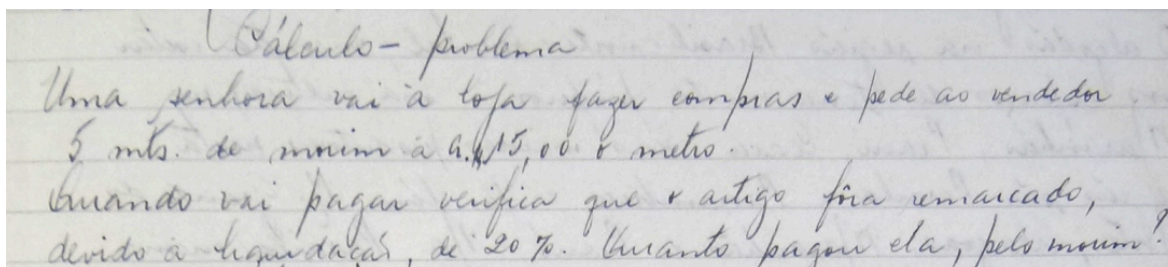 Cálculo - problema
Uma senhora vai à loja fazer compras e pede ao vendedor
5 mts. de morim à 15,00 o metro.
Quando vai pagar verifica que o artigo fôra remarcado,
devido à liquidação, de 20%. Quanto pagou ela, pelo morim?